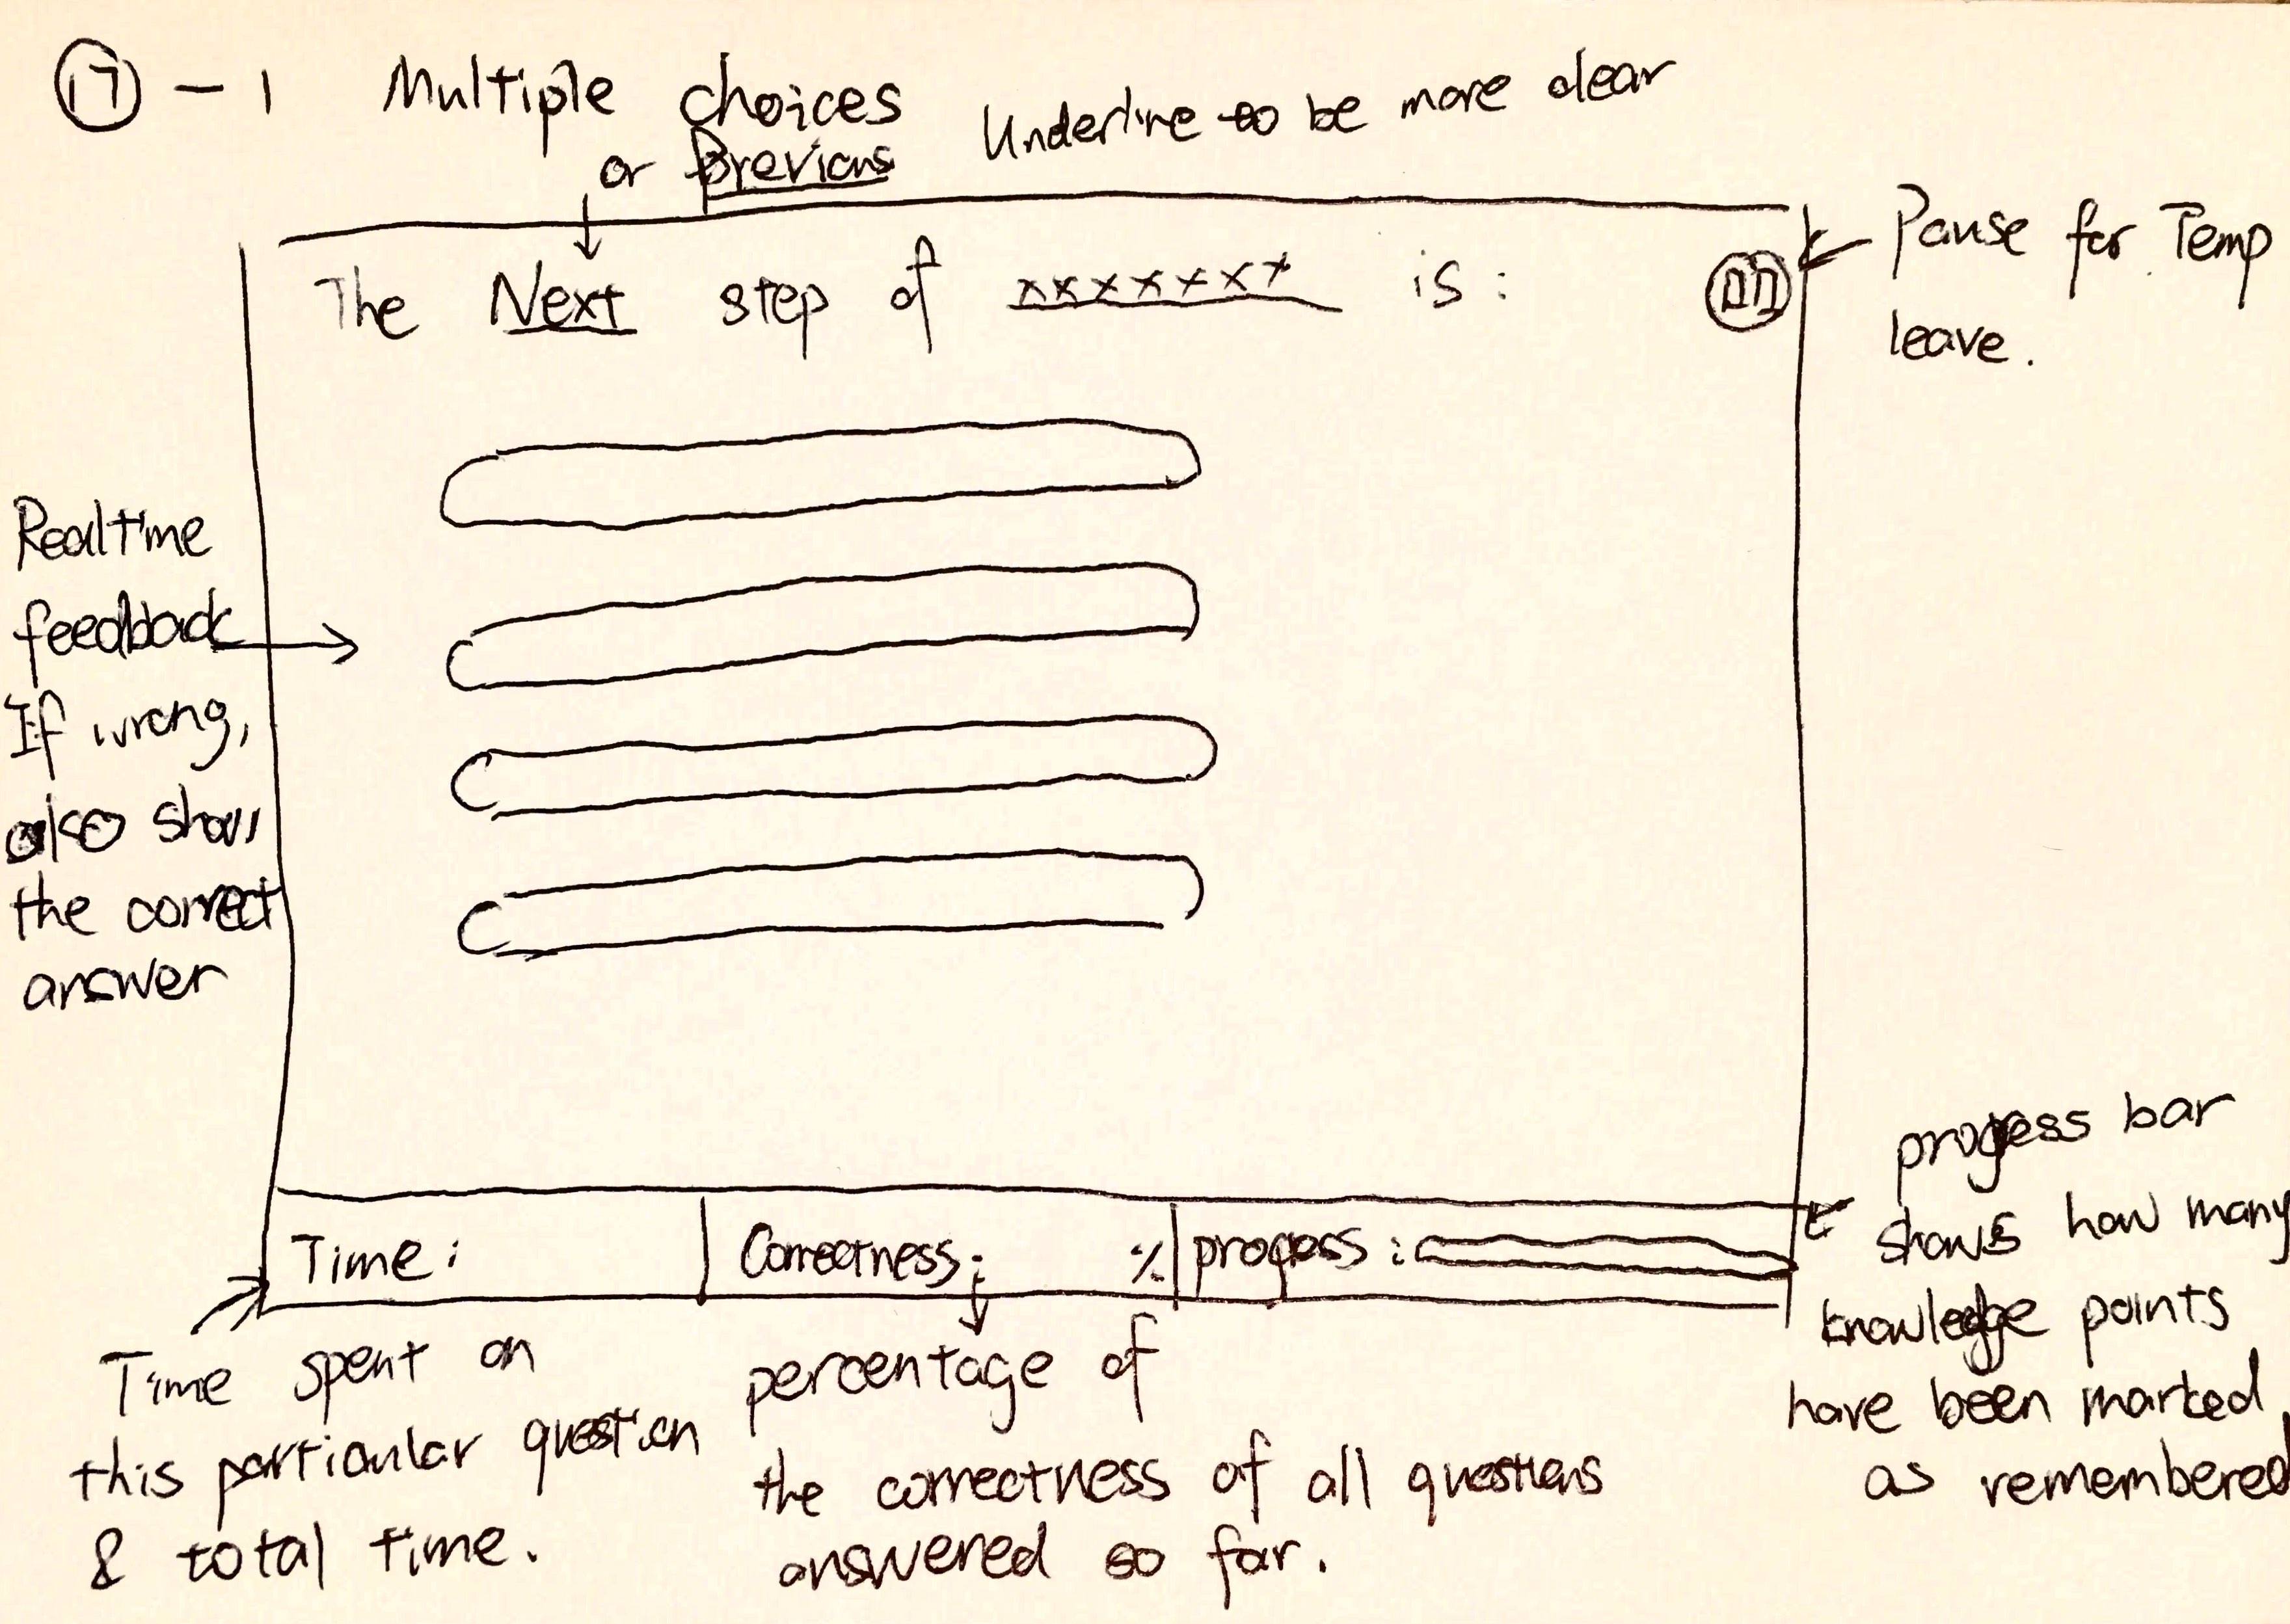 17 - 1 Multiple choices
or Previous
Underline to be more clear
The Next step of xxxxxxx is:
Pause for Temp
leave.
Realtime
feedback
If wrong,
also show
the correct
answer
Time:
Correctness:
%
progess :
progess bar
shows how many
knowledge points
have been marked
as remembered
Time spent on
this particular question
& total time.
percentage of
the correctness of all questions
answered so far.